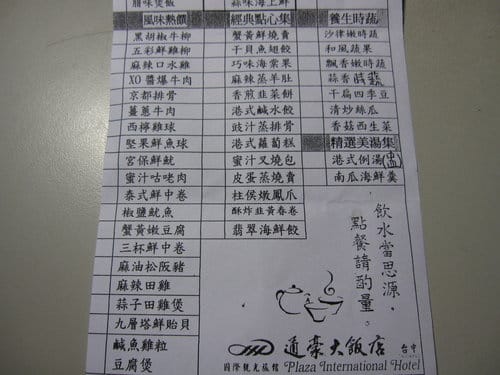 腊味煲飯
風味熱饌
黑胡椒牛柳
五彩鮮雞柳
麻辣口水雞
XO醬爆牛肉
京都排骨
薑蔥牛肉
西檸雞球
堅果鮮魚球
宮保鮮魷
蜜汁咕咾肉
泰式鮮中卷
椒鹽魷魚
蟹黃嫩豆腐
三杯鮮中卷
麻油松阪豬
麻辣田雞
蒜子田雞煲
九層塔鮮貽貝
鹹魚雞粒
豆腐煲
蒜味海上鮮
經典點心集
蟹黃鮮燒賣
干貝魚翅餃
巧味海棠果
麻辣蒸羊肚
香煎韭菜餅
港式鹹水餃
豉汁蒸排骨
港式蘿蔔糕
蜜汁叉燒包
皮蛋蒸燒賣
柱侯燉鳳爪
酥炸韭黃春卷
翡翠海鮮餃
養生時蔬
沙律嫩時蔬
和風蔬果
飄香嫩時蔬
蒜香時蔬
干扁四季豆
清炒絲瓜
香菇西生菜
精選美湯集
港式例湯(中)
南瓜海鮮羹
飲水當思源，
點餐請酌量。
通豪大飯店 台中
國際觀光旅館 Plaza International Hotel